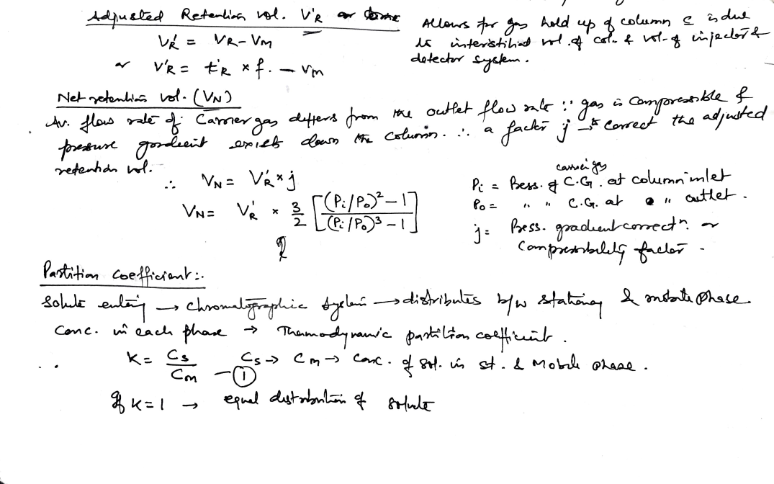 Adjusted Retention vol. V'R or
V'R = VR - VM
or V'R = t'R × f. - VM
Allows for gas hold up of column & is due
to interstitial vol. of col. & vol. of injector &
detector system.
Net retention vol. (VN)
Av. flow rate of Carrier gas differs from the outlet flow rate ∵ gas is compressible &
pressure gradient exists down the column. ∴ a factor j → to correct the adjusted
retention vol.
∴ VN = V'R × j
VN = V'R × 3/2 [(Pi/Po)² - 1 / (Pi/Po)³ - 1]
carrier gas
Pi = Press. of C.G. at column inlet
Po = " " C.G. at " outlet.
j = Press. gradient correctn. or
Compressibility factor.
Partition Coefficient:.
Solute entering → Chromatographic System → distributes b/w stationary & mobile phase.
Conc. in each phase → Thermodynamic partition coefficient.
∴ K = Cs/Cm —① Cs → Cm → Conc. of sol. in st. & Mobile phase.
If K = 1 → equal distribution of solute